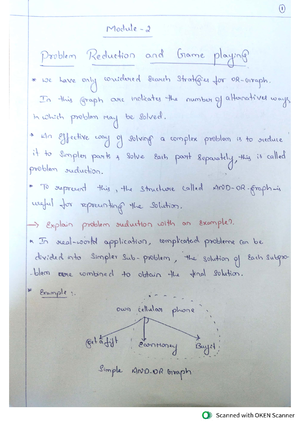 1
Module-2
Problem Reduction and Game playing
* We have only considered Search Strategies for OR-graph.
In this graph arc indicates the number of alternatives ways
in which problem may be solved.
* An Effective way of solving a complex problem is to reduce
it to simpler parts & solve Each part Separately, this is called
problem reduction.
* To represent this, the structure called AND-OR-graph is
useful for representing the solution.
→ Explain problem reduction with an Example?
* In real-world application, complicated problems can be
divided into simpler sub-problem, the solution of Each subpro-
blem are combined to obtain the final solution.
* Example:
own cellular phone
Get a gift Earn money Buy it
Simple AND-OR Graph
Scanned with OKEN Scanner